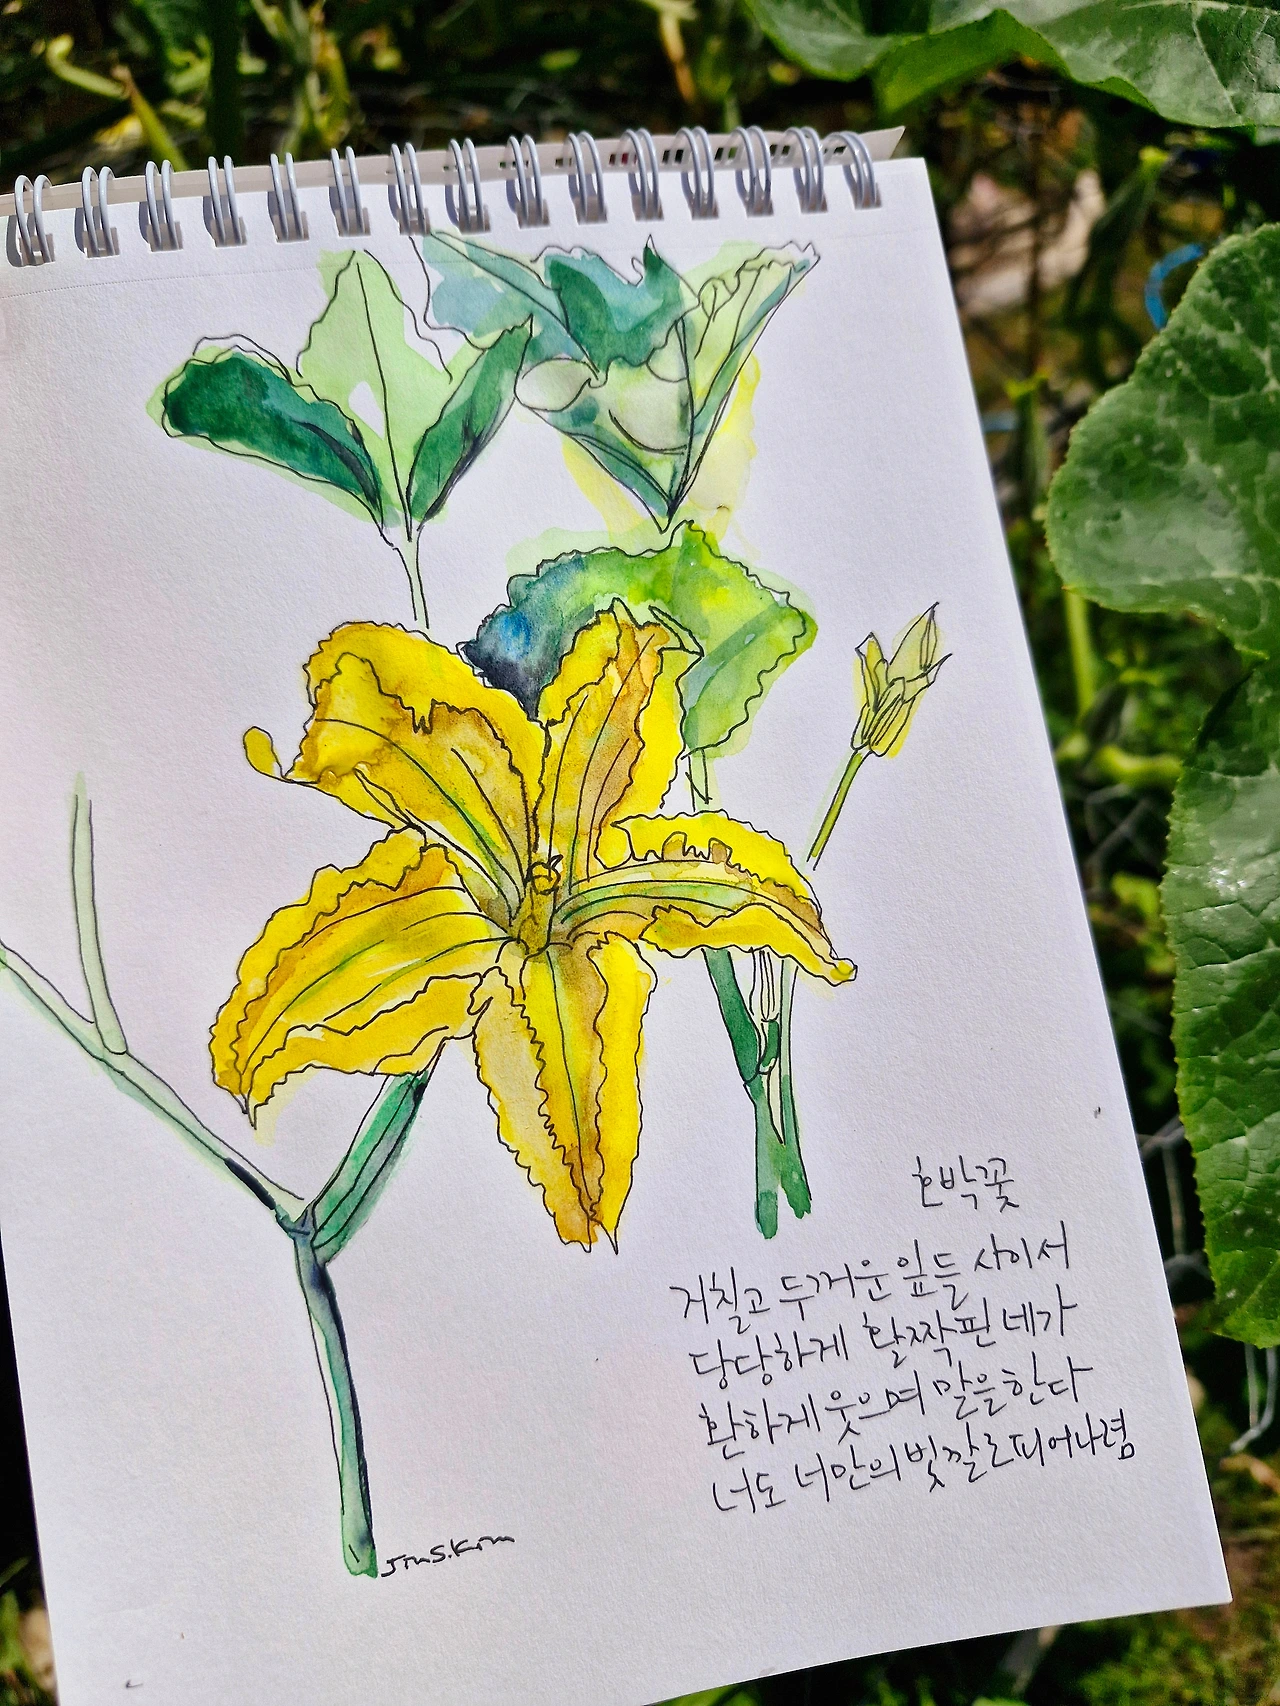 호박꽃
거칠고 두꺼운 잎들 사이서
당당하게 활짝핀 네가
환하게 웃으며 말을 한다
너도 너만의 빛깔로 피어나렴
Jin S. Kim